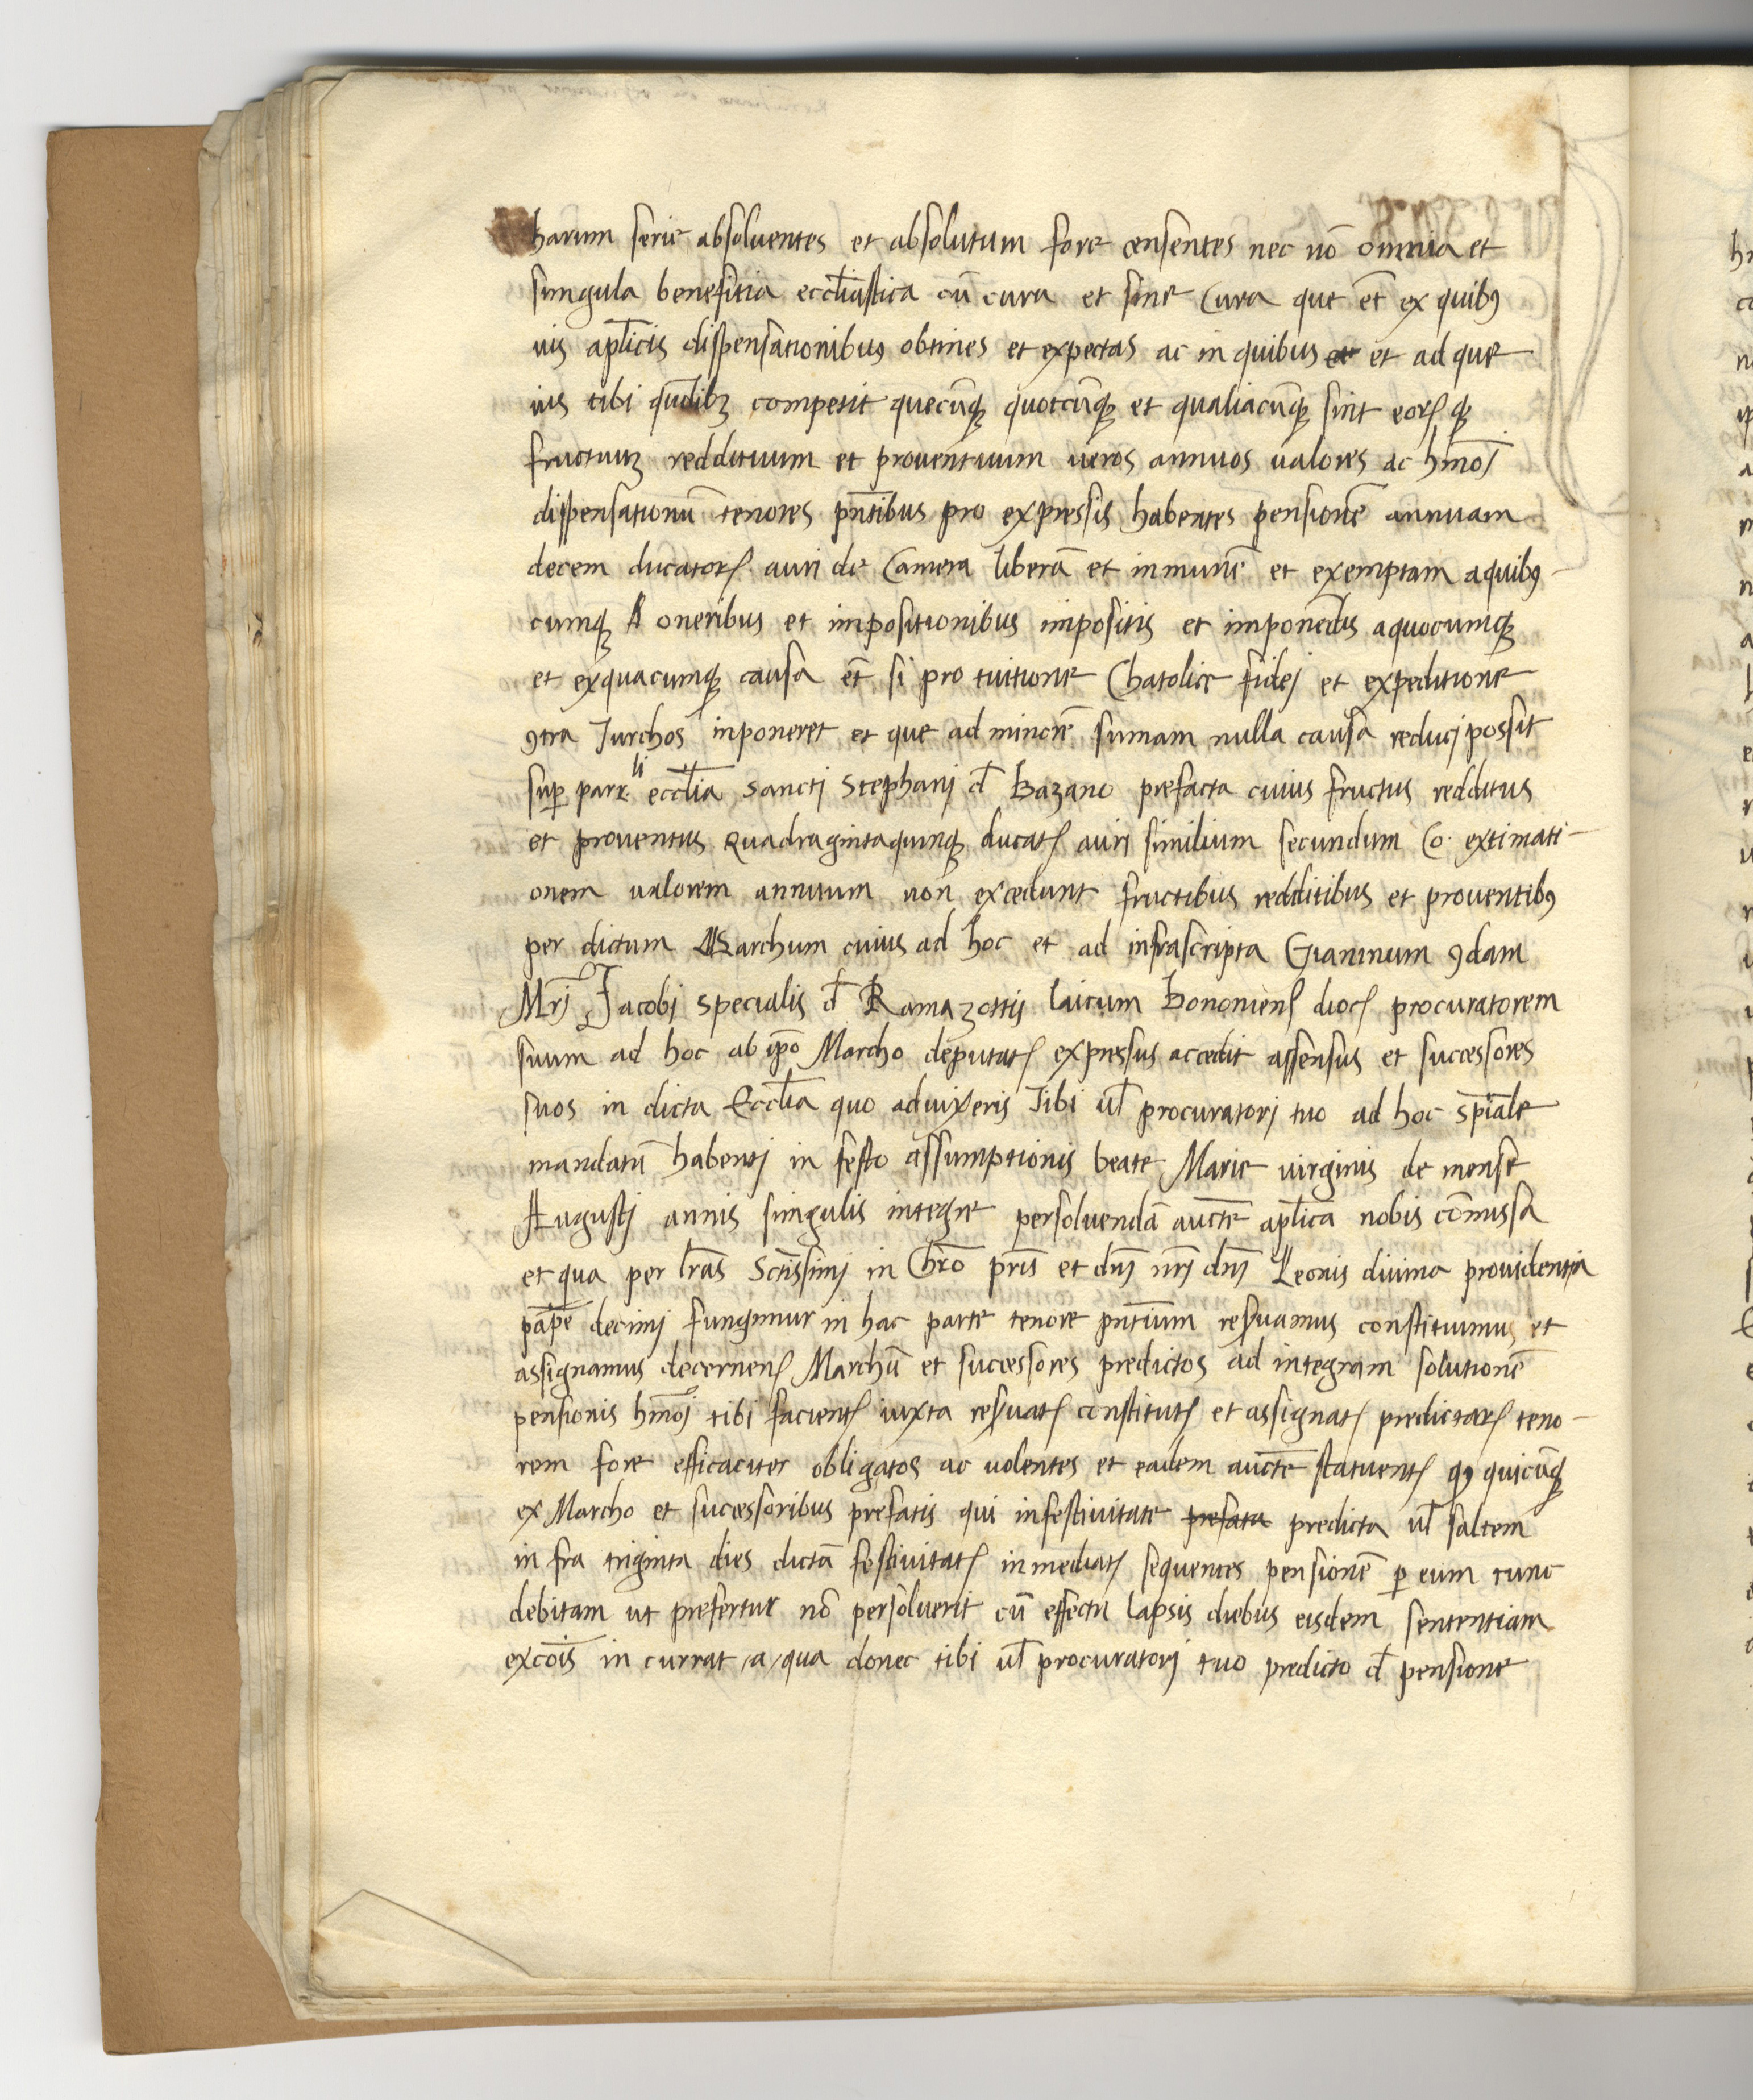 harum serie absolventes et absolutum fore censentes nec nō omnia et
singula benefitia eccl̄iastica cū cura et sine Cura que et̄ ex quibꝰ
vis apl̄icis dispensationibꝰ obtines et expectas ac in quibus et ad que
ius tibi qūdlibꝫ competit quecūqꝫ quotcūqꝫ et qualiacūqꝫ sint eorꝝ qꝫ
fructuuꝫ reddituum et proventuum veros annuos valores ac hm̄oj
dispensationū tenores pn̄tibus pro expressis habentes pensionē annuam
decem ducatorꝝ auri de Camera liberā et inmunē et exemptam aquibꝰ
cumqꝫ oneribus et impositionibus impositis et imponēdis aquocumqꝫ
et exquacumqꝫ causa et̄ si pro tuitione Chatolice fidej et expeditione
ꝯtra Turchos inponeret et que ad minorē sumam nulla causa reducj possit
suꝑ parr.li eccl̄ia Sanctj Stephanj d̄ Bazano prefacta cuius fructus redditus
et proventus Quadragintaquinqꝫ ducatꝭ auri similium secundum Co. extimati-
onem valorem annuum non excedunt fructibus redditibus et proventibꝰ
per dictum Marchum cuius ad hoc et ad infrascripta Gianinum ꝯdam
Mr̄j Jacobi specialis d̄ Ramazottij laicum Bononienꝭ diocꝭ procuratorem
suum ad hoc ab ip̄o Marcho deputatꝭ expressus accedit assensus et successores
suos in dicta Eccl̄ia quo advixeris Tibi ul̄ procuratorj tuo ad hoc sp̄iale
mandatū habentj in festo assumptionis beate Marie virginis de mense
Augustj annis singulis integre persolvendā auct̄e apl̄ica nobis cōmissa
et qua per lr̄as Sct̄issimj in Chr̄o pr̄is et dn̄j nr̄j dn̄j Leonis divina providentia
pāpe decimj fungimur in hac parte tenore pn̄tium reservamus constituimus et
assignamus decernenꝭ Marchū et successores predictos ad integram solutionē
pensionis hm̄oj tibi facientꝭ iuxta reservatꝭ constitutꝭ et assignatꝭ predictarꝝ teno-
rem fore efficaciter obligatos ac volentes et eadem auct̄e statuentꝭ qꝙ quicūqꝫ
ex Marcho et successoribus prefatis qui infestivitate prefata predicta ul̄ saltem
in fra triginta dies dictā festivitatꝭ inmediatꝭ sequentes pensionē ꝑ eum tunc
debitam ut prefertur nō persolverit cū effectu lapsis diebus eisdem sententiam
excōis in currat /a/ qua donec tibi ul̄ procuratorj tuo predicto d̄ pensione